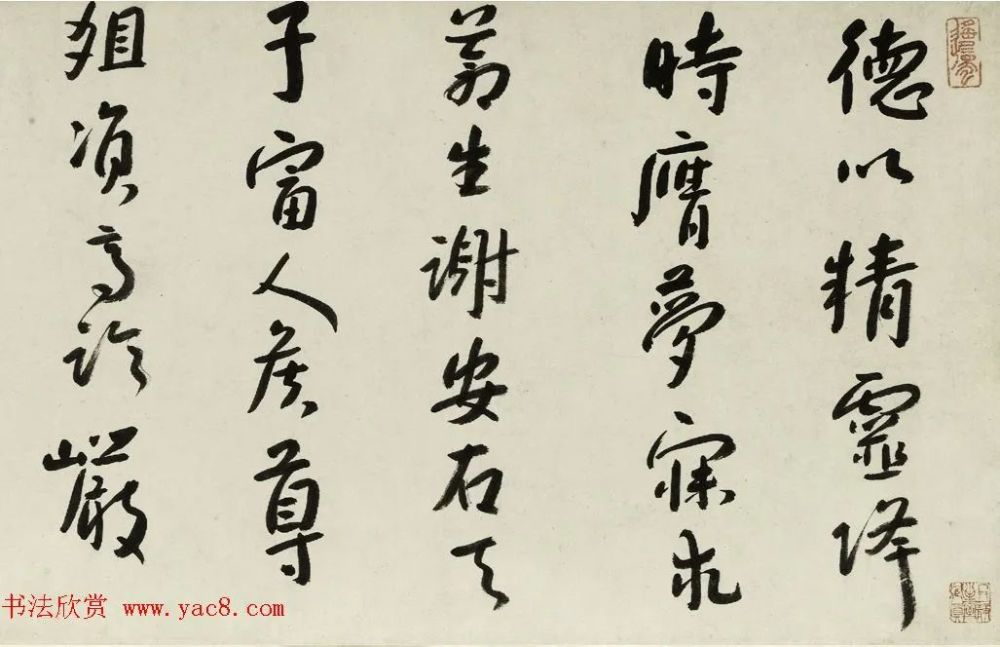 德以精靈降
時膺夢寐求
蒼生謝安石天
子富人侯尊
俎資高論
巖
书法欣赏 www.yac8.com